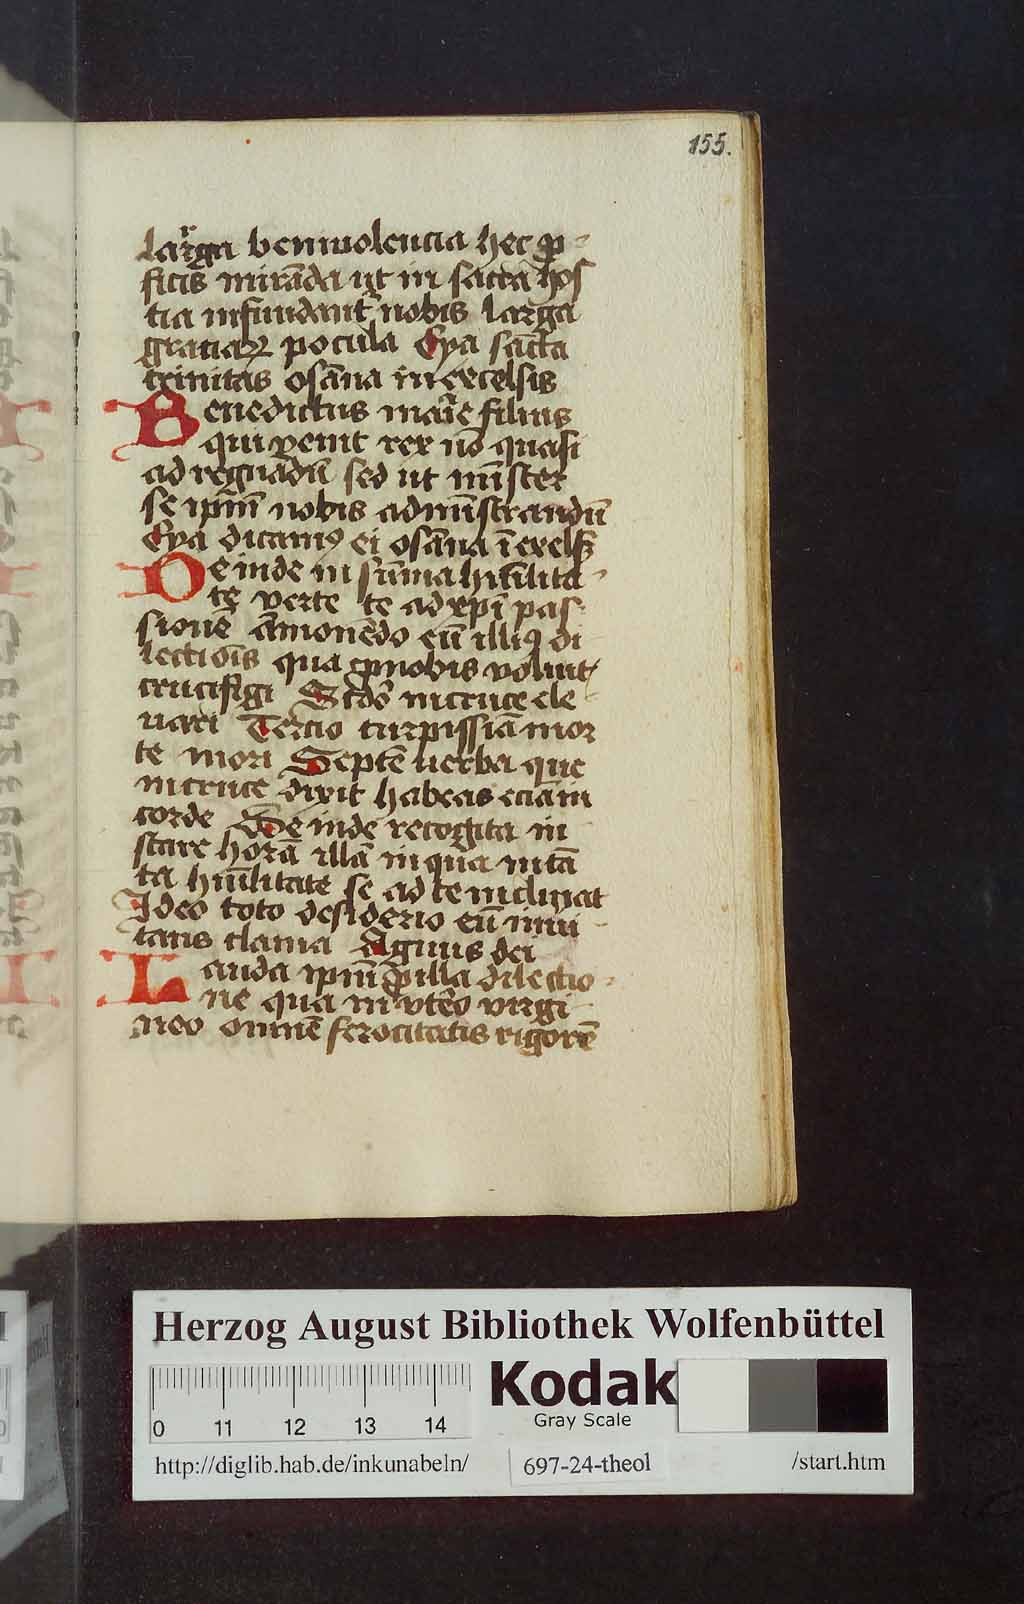 155.
larga beniuolencia hec ꝑ-
ficis mirāda ut in sacra hos
tia infundant᷑ nobis larga
graciaꝝ pocula Eya sācta
trinitas osāna in excelsis
Benedictus marie filius
qui venit rex nō quasi
ad regnādū sed ut mīster
se ip̄m nobis admīstrandū
Eya dicamꝰ ei osāna ī excelsꝭ
Deinde in sūma hūilita-
te verte te ad xp̄i pas-
sionē āmonēdo eū illiꝰ di-
lectiōis qua ꝓ nobis voluit
crucifigi Scdō in cruce ele
uari Tercio turpissīa mor
te mori Septē uerba que
in cruce dixit habeas eciā in
corde Deinde recogita in
stare horā illā in qua in tā
ta hūilitate se ad te inclinat
Ideo toto desiderio eū inui
tans clama Agnus dei
Lauda ip̄m ꝓ illa dilectio-
ne qua in vtēo virgi-
neo omnē ferocitatis rigorē
Herzog August Bibliothek Wolfenbüttel
0 11 12 13 14
Kodak
Gray Scale
http://diglib.hab.de/inkunabeln/ 697-24-theol /start.htm